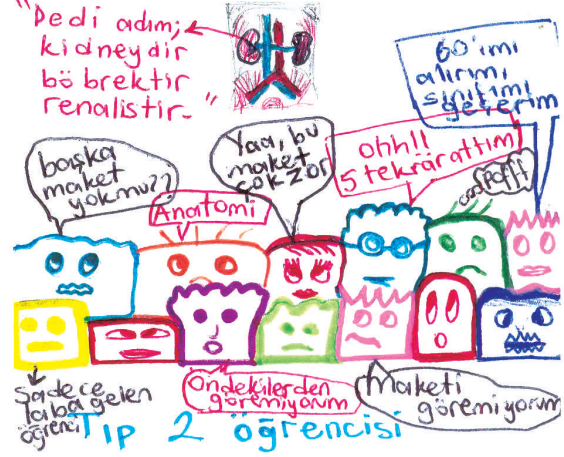 "Dedi adım;
kidneydir
böbrektir
renalistir."
60'ımı
alırım,
sınıfımı
geçerim
başka
maket
yokmu??
Yaa, bu
maket
çok zor
ohh!!
5 tekrar attım
Anatomi
Pofft
Sadece
laba gelen
öğrenci
Öndekilerden
göremiyorum
Maketi
göremiyorum
Tıp 2 öğrencisi